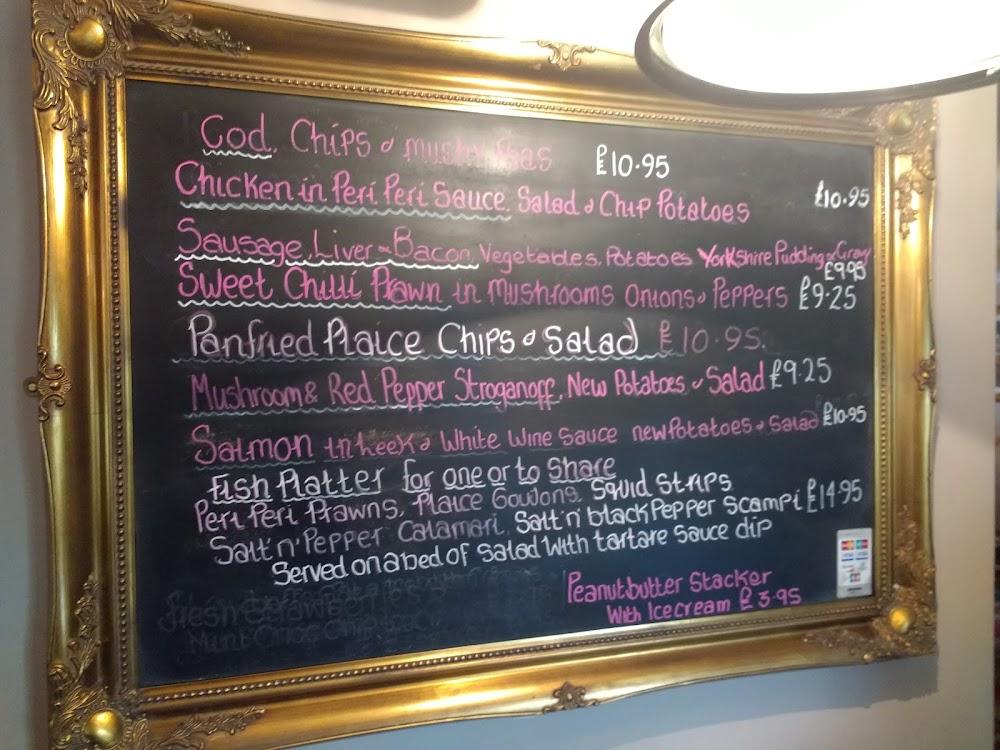 Cod, Chips & Mushy Peas £10.95
Chicken in Peri Peri Sauce, Salad & Chip Potatoes £10.95
Sausage, Liver & Bacon, Vegetables, Potatoes Yorkshire Pudding & Gravy £9.95
Sweet Chilli Prawn in Mushrooms Onions & Peppers £9.25
Panfried Plaice Chips & Salad £10.95
Mushroom & Red Pepper Stroganoff, New Potatoes & Salad £9.25
Salmon in Leek & White Wine Sauce new Potatoes & Salad £10.95
Fish Platter for one or to Share
Peri Peri Prawns, Plaice Goujons, Squid Strips
Salt 'n' Pepper Calamari, Salt 'n' black Pepper Scampi £14.95
Served on a bed of Salad With tartare Sauce dip
Peanutbutter Stacker
With Icecream £3.95